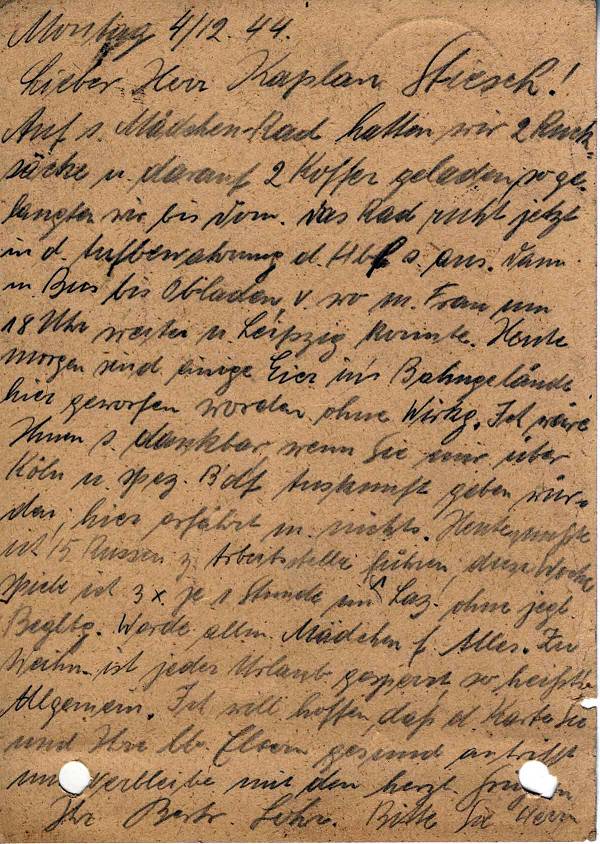 Montag 4/12. 44.
Lieber Herr Kaplan Stiesch!
Auf s. Mädchen-Rad hatten wir 2 Ruck-
säcke u. darauf 2 Koffer geladen, so ge-
langten wir bis Dom. Das Rad ruht jetzt
in d. Aufbewahrung d. Hbf s. aus. Dann
m. Bus bis Opladen, v. wo m. Frau um
18 Uhr weiter n. Leipzig konnte. Heute
morgen sind einige Eier ins Bahngelände
hier geworfen worden ohne Wirkg. Ich wäre
Ihnen s. dankbar, wenn Sie mir über
Köln u. spez. B'df Auskunft geben wür-
den, hier erfährt m. nichts. Heute mußte
ich 15 Russen z. Arbeitsstelle führen, diese Woche
spiele ich 3 x je 1 Stunde im Laz. ohne jegl
Begltg. Werde allm. Mädchen f. Alles. Zu
Weihn. ist jeder Urlaub gesperrt, so heißt's
Allgemein. Ich will hoffen, daß d. Karte Sie
und Ihre lb. Eltern gesund antrifft
und verbleibe mit den herzl. Grüßen
Ihr Bertr. Bitte Sie Herrn